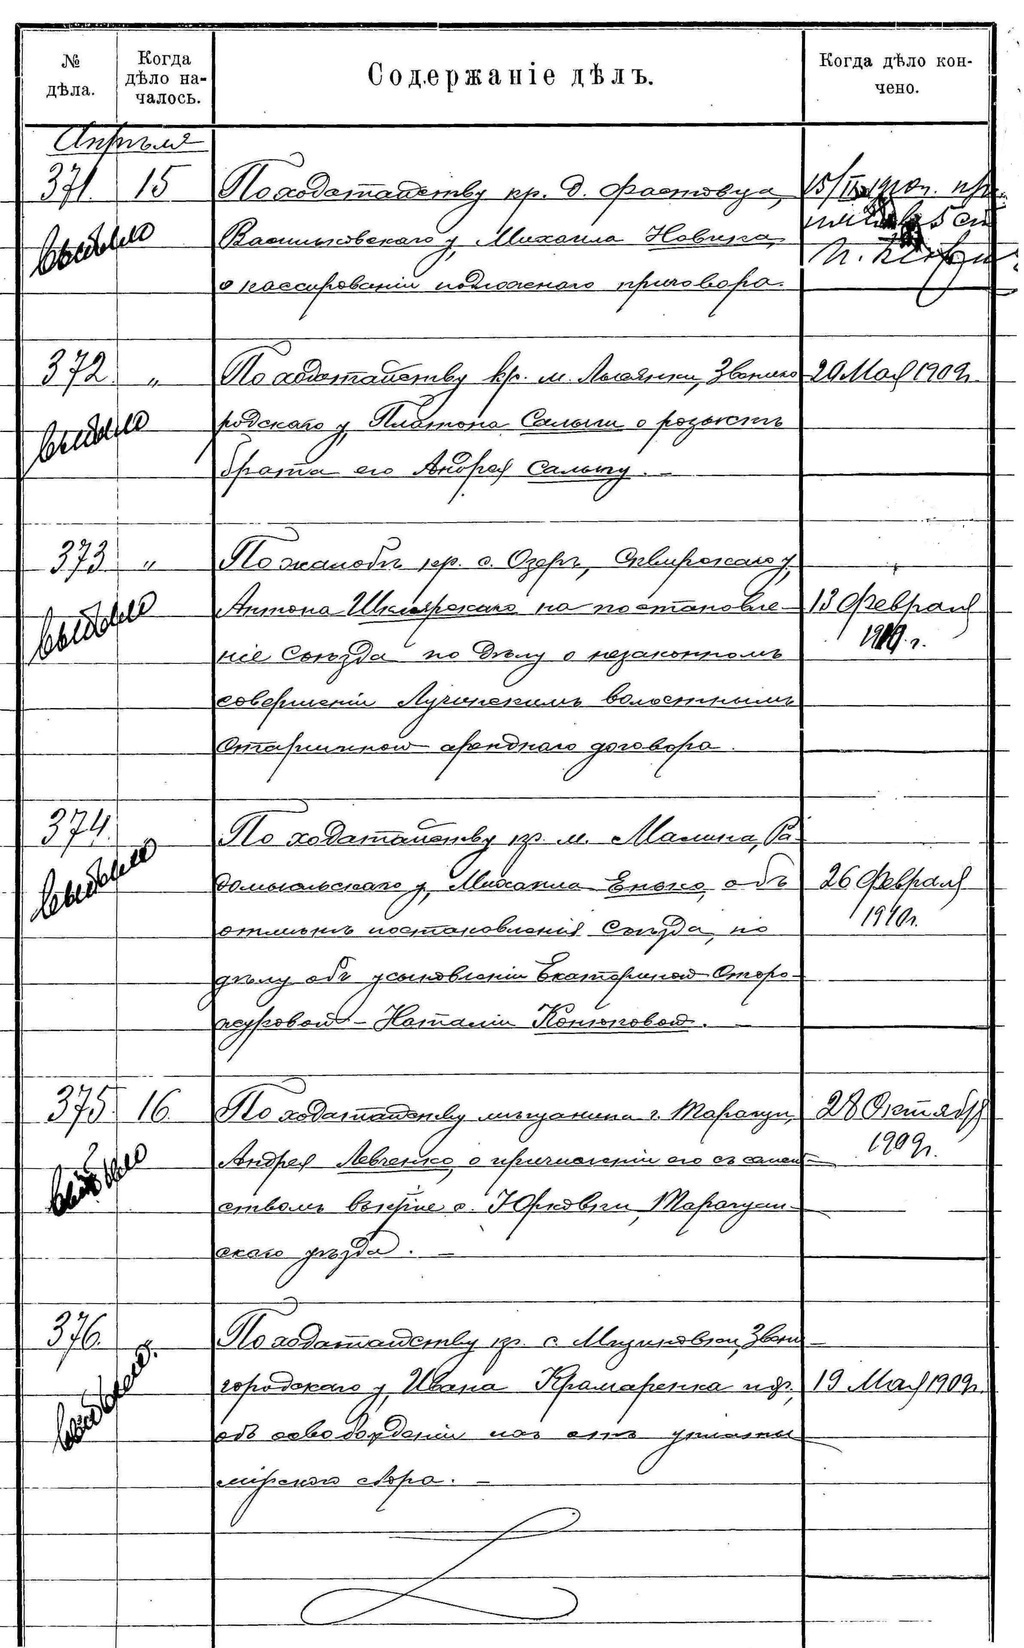 № дѣла.
Когда дѣло на-
чалось.
Содержаніе дѣлъ.
Когда дѣло кон-
чено.
Апрѣля
371. 15
По ходатайству кр. д. Фастовца,
Васильковскаго у, Михаила Новика,
о кассированіи подложнаго приговора.
выбыло
15/II 1910г.
372. „
По ходатайству кр. м. Лысянки, Звениго
родскаго у, Платона Салыги о розыскѣ
брата его Андрея Салыгу. —
20 Мая 1909г.
выбыло
373 „
По жалобѣ кр. с. Озеръ, Сквирскаго у,
Антона Шклярскаго на постановле-
ніе Съѣзда по дѣлу о незаконномъ
совершеніи Лучинскимъ волостнымъ
Старшиною арендного договора.
13 Февраля
1910 г.
выбыло
374.
По ходатайству кр. м. Малина, Ра-
домысльскаго у, Михаила Енько, объ
отмѣнѣ постановленія Съѣзда, по
дѣлу объ усыновленіи Екатериной Сторо-
жуковой – Наталіи Конюховой. —
26 Февраля
1910г.
выбыло
375. 16
По ходатайству мѣщанина г. Таращи,
Андрея Левченко, о причисленіи его съ семей
ствомъ въ кр-не с. Юрковки, Таращан-
скаго уѣзда. —
28 Октября
1909г.
выбыло
376. „
По ходатайству кр. с. Мизиновки, Звени-
городскаго у, Ивана Крамаренка и др.,
объ освобожденіи ихъ отъ уплаты
мірского сбора. —
19 Мая 1909г.
выбыло